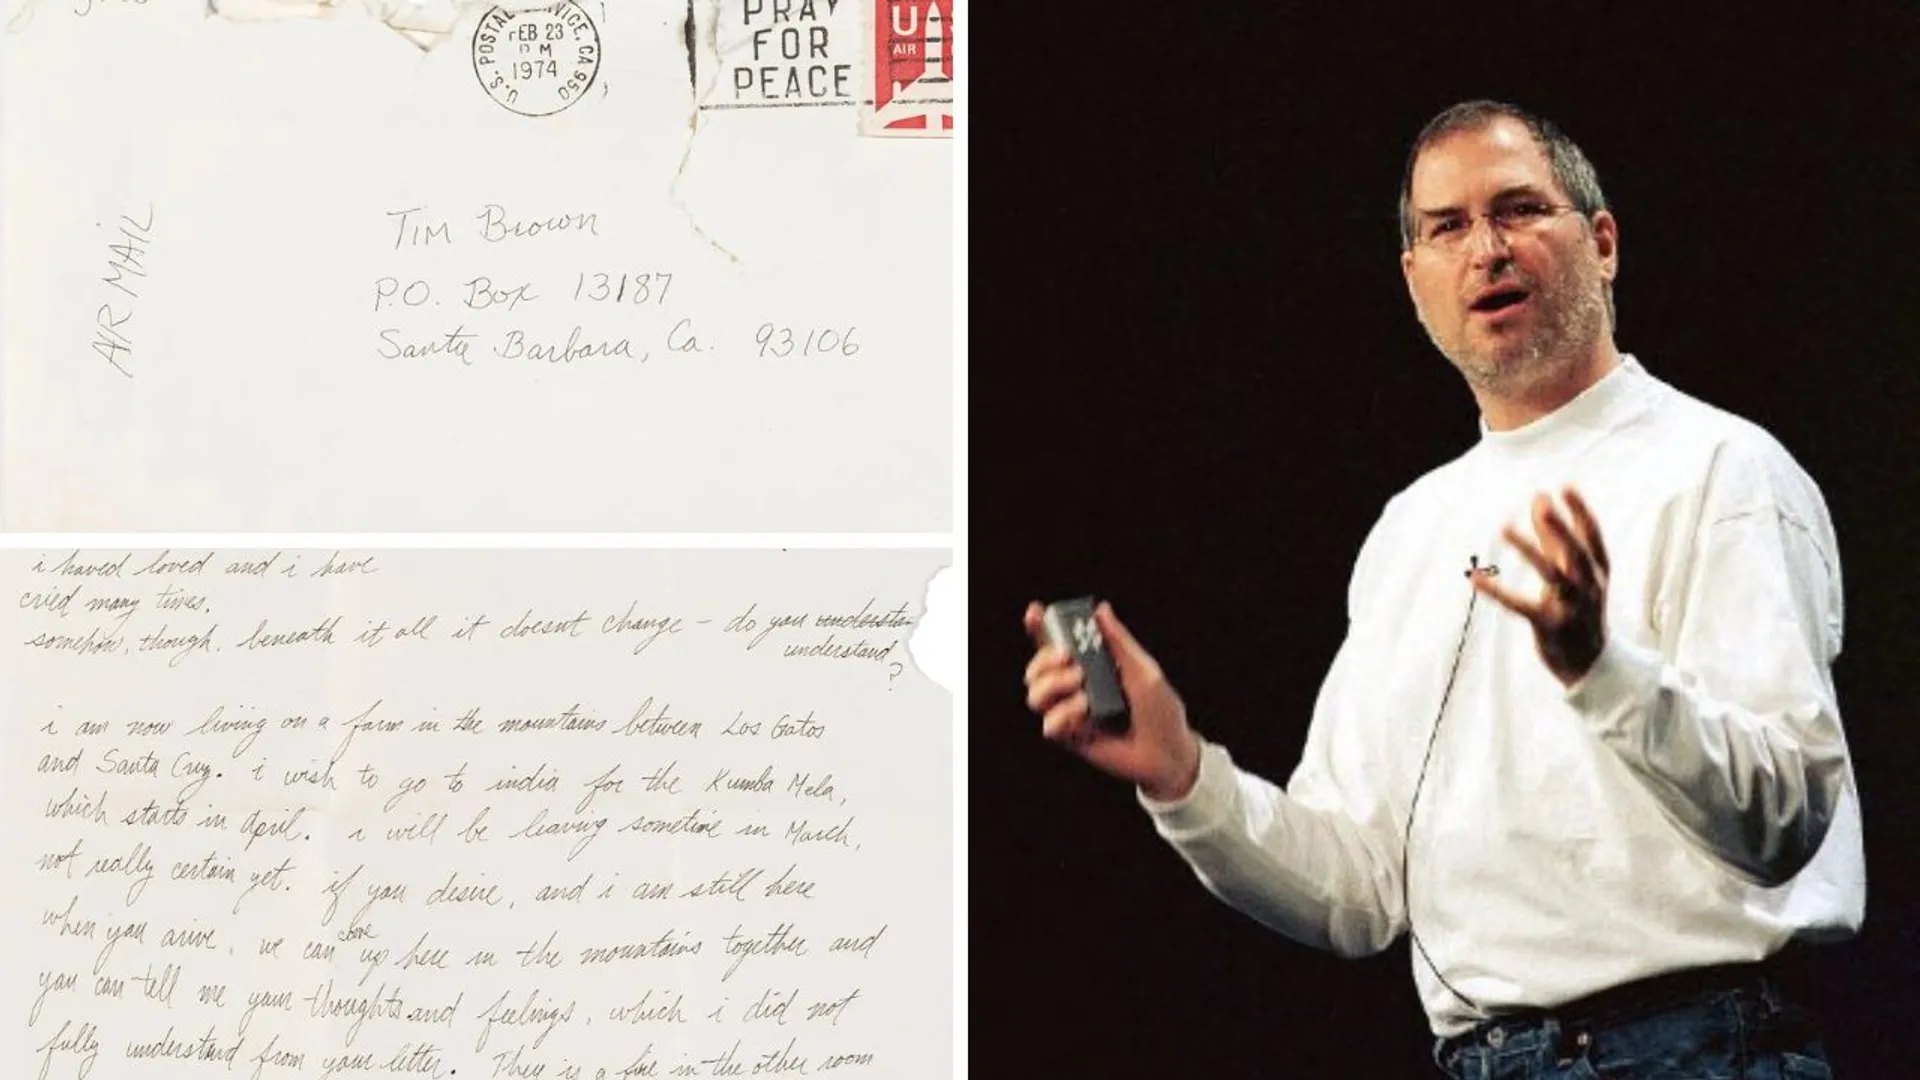 U.S. POSTAL SERVICE, CA 950
FEB 23
PM
1974
PRAY
FOR
PEACE
U
AIR
AIR MAIL
Tim Brown
P.O. Box 13187
Santa Barbara, Ca. 93106
i haved loved and i have
cried many times.
somehow, though, beneath it all it doesnt change - do you understan
understand
?
i am now living on a farm in the mountains between Los Gatos
and Santa Cruz. i wish to go to india for the Kumba Mela,
which starts in april. i will be leaving sometime in March,
not really certain yet. if you desire, and i am still here
when you arive, we can come up here in the mountains together and
you can tell me your thoughts and feelings, which i did not
fully understand from your letter. There is a fire in the other room